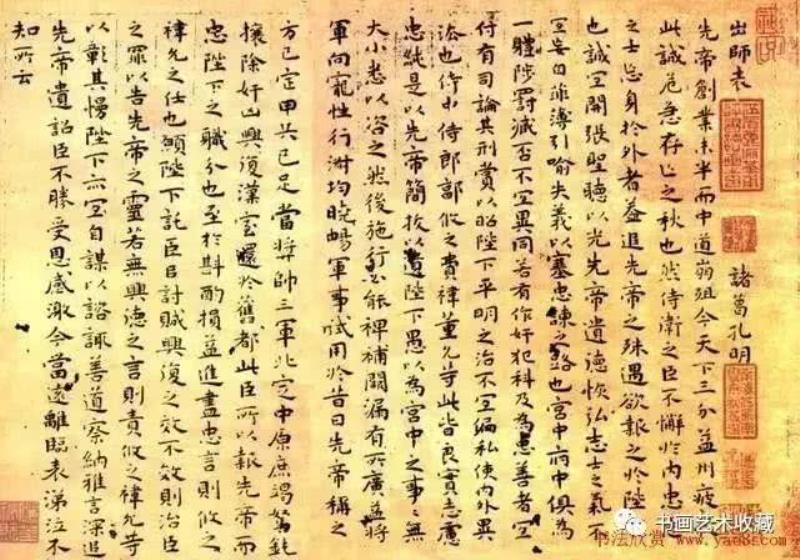 出師表 諸葛孔明
先帝創業未半而中道崩殂今天下三分益州疲
此誠危急存亡之秋也然侍衛之臣不懈於內忠
之士忘身於外者蓋追先帝之殊遇欲報之於陛
也誠宜開張聖聽以光先帝遺德恢弘志士之氣不
宜妄自菲薄引喻失義以塞忠諫之路也宮中府中俱為
一體陟罰臧否不宜異同若有作奸犯科及為忠善者宜
付有司論其刑賞以昭陛下平明之治不宜偏私使內外異
法也侍中侍郎郭攸之費禕董允等此皆良實志慮
忠純是以先帝簡拔以遺陛下愚以為宮中之事々無
大小悉以咨之然後施行必能裨補闕漏有所廣益將
軍向寵性行淑均曉暢軍事試用於昔日先帝稱之
方已定甲兵已足當獎帥三軍北定中原庶竭駑鈍
攘除奸凶興復漢室還於舊都此臣所以報先帝而
忠陛下之職分也至於斟酌損益進盡忠言則攸之
禕允之任也願陛下託臣以討賊興復之效不效則治臣
之罪以告先帝之靈若無興德之言則責攸之禕允等
以彰其慢陛下亦宜自謀以諮諏善道察納雅言深追
先帝遺詔臣不勝受恩感激今當遠離臨表涕泣不
知所云
书画艺术收藏
书法欣赏 www.yac8s.com